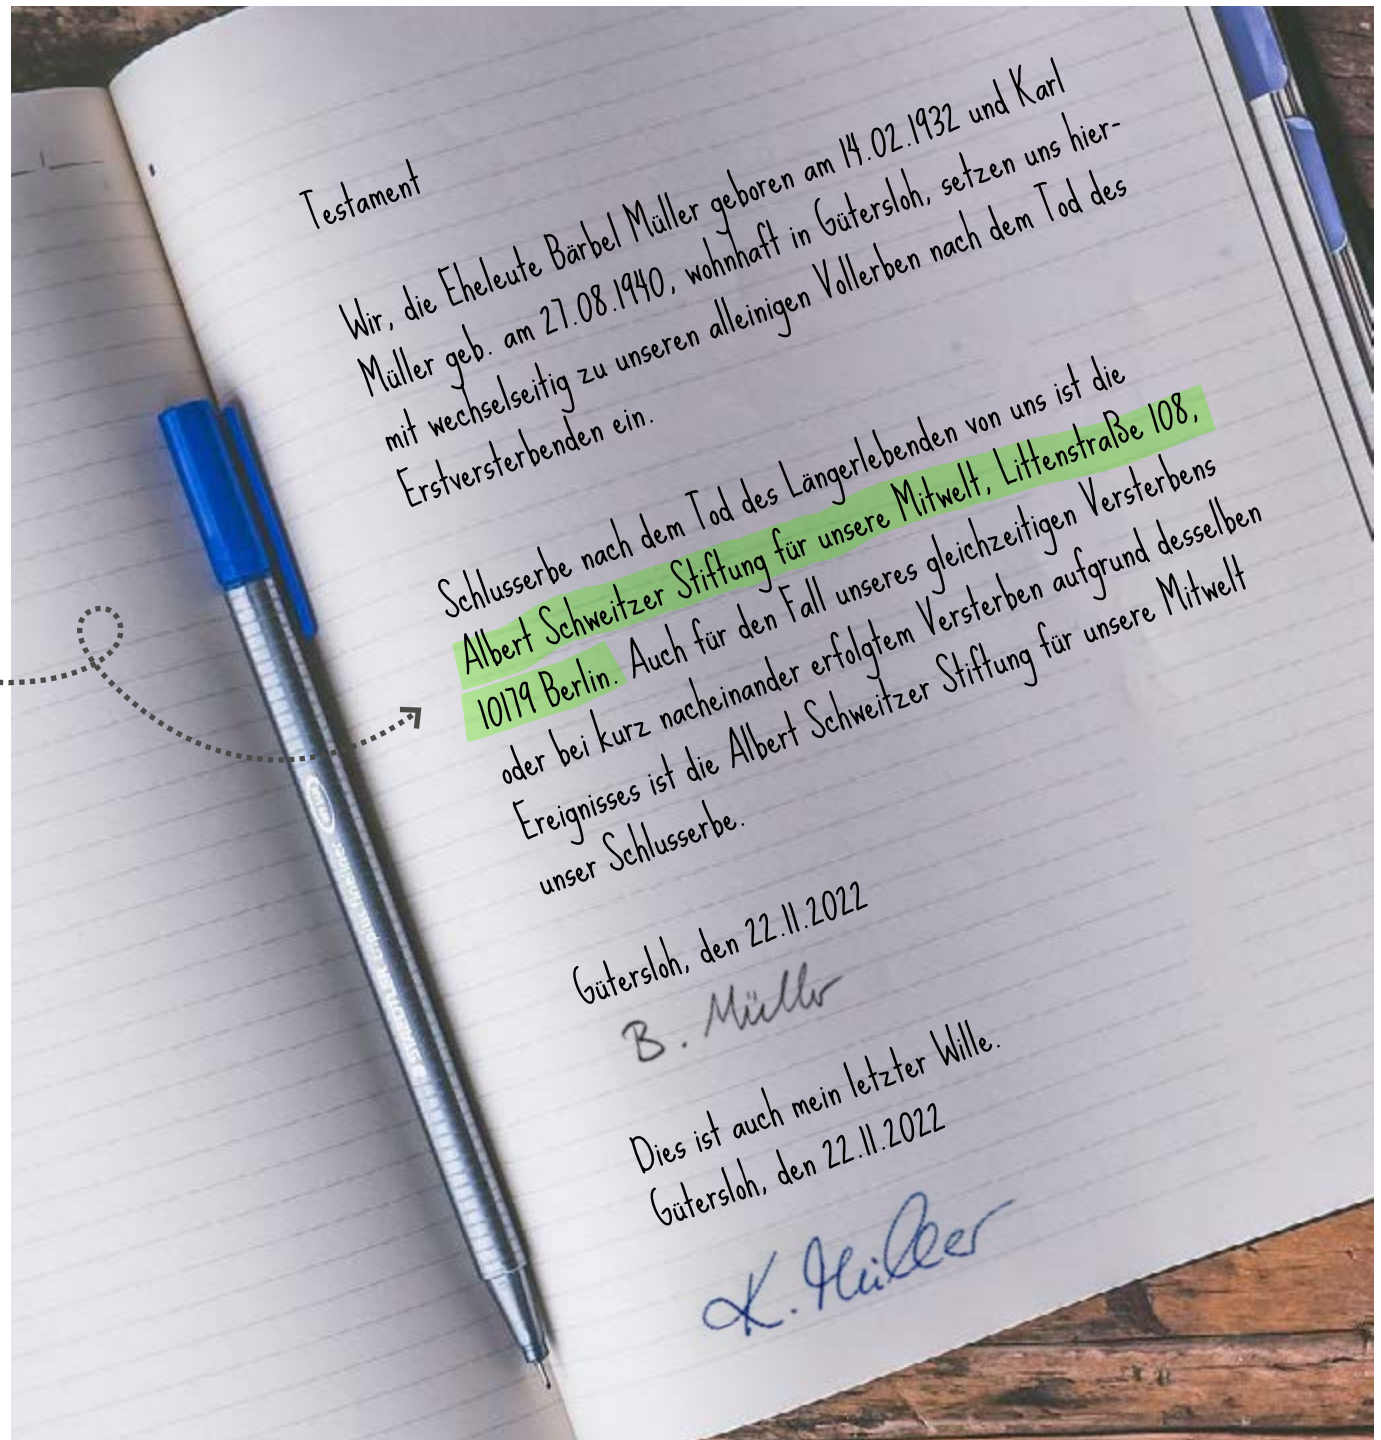 Testament
Wir, die Eheleute Bärbel Müller geboren am 14.02.1932 und Karl
Müller geb. am 27.08.1940, wohnhaft in Gütersloh, setzen uns hier-
mit wechselseitig zu unseren alleinigen Vollerben nach dem Tod des
Erstversterbenden ein.
Schlusserbe nach dem Tod des Längerlebenden von uns ist die
Albert Schweitzer Stiftung für unsere Mitwelt, Littenstraße 108,
10179 Berlin. Auch für den Fall unseres gleichzeitigen Versterbens
oder bei kurz nacheinander erfolgtem Versterben aufgrund desselben
Ereignisses ist die Albert Schweitzer Stiftung für unsere Mitwelt
unser Schlusserbe.
Gütersloh, den 22.11.2022
B. Müller
Dies ist auch mein letzter Wille.
Gütersloh, den 22.11.2022
K. Müller